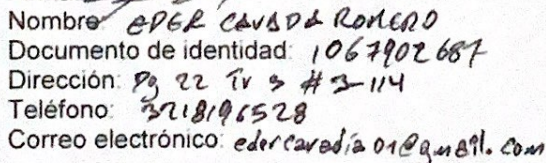 Nombre: EDER CAVADIA ROMERO
Documento de identidad: 1067902687
Dirección: Dg 22 Tv 3 #3-114
Teléfono: 3218196528
Correo electrónico: edercavadia01@gmail.com